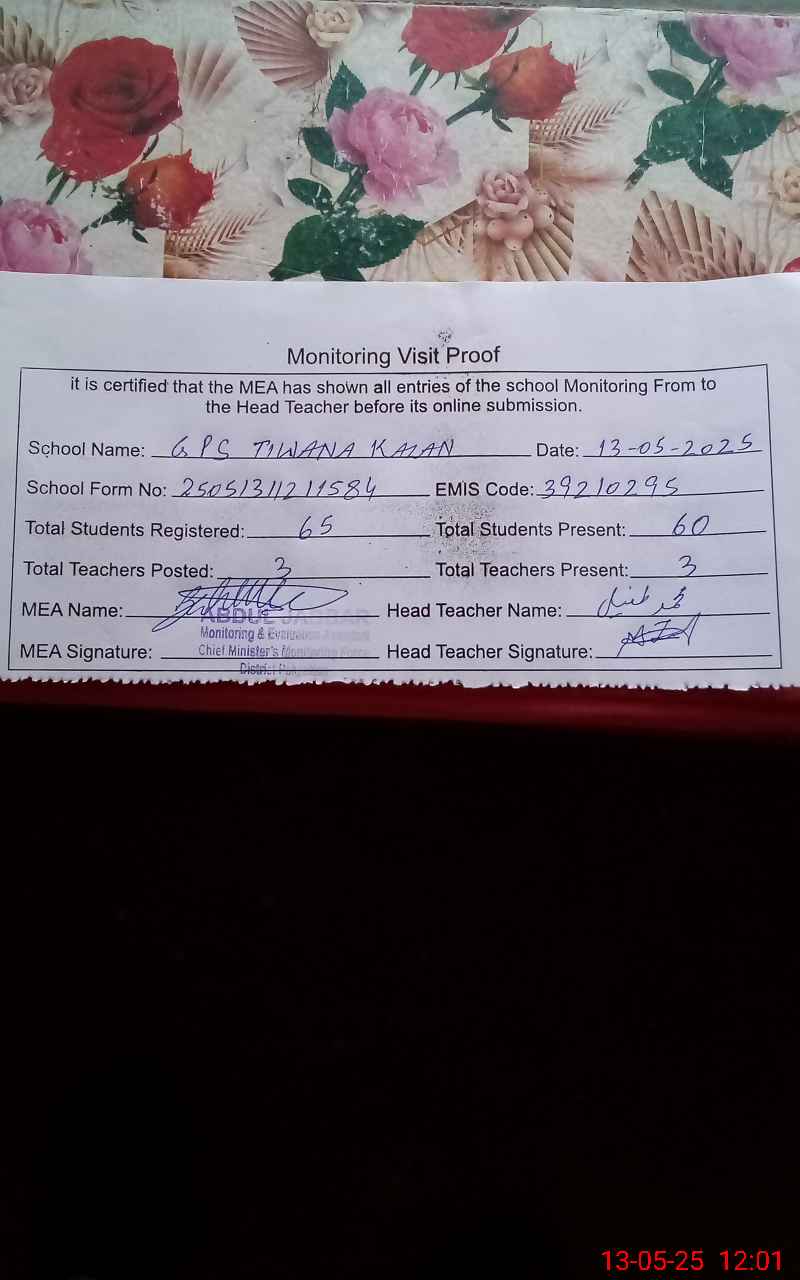 Monitoring Visit Proof
it is certified that the MEA has shown all entries of the school Monitoring From to
the Head Teacher before its online submission.
School Name: GPS TIWANA KALAN Date: 13-05-2025
School Form No: 25051311211584 EMIS Code: 39210295
Total Students Registered: 65 Total Students Present: 60
Total Teachers Posted: 3 Total Teachers Present: 3
MEA Name: Head Teacher Name: محمد طفیل
ABDUL JABBAR
Monitoring & Evaluation Assistant
MEA Signature: Chief Minister's Monitoring Force Head Teacher Signature:
District
13-05-25 12:01